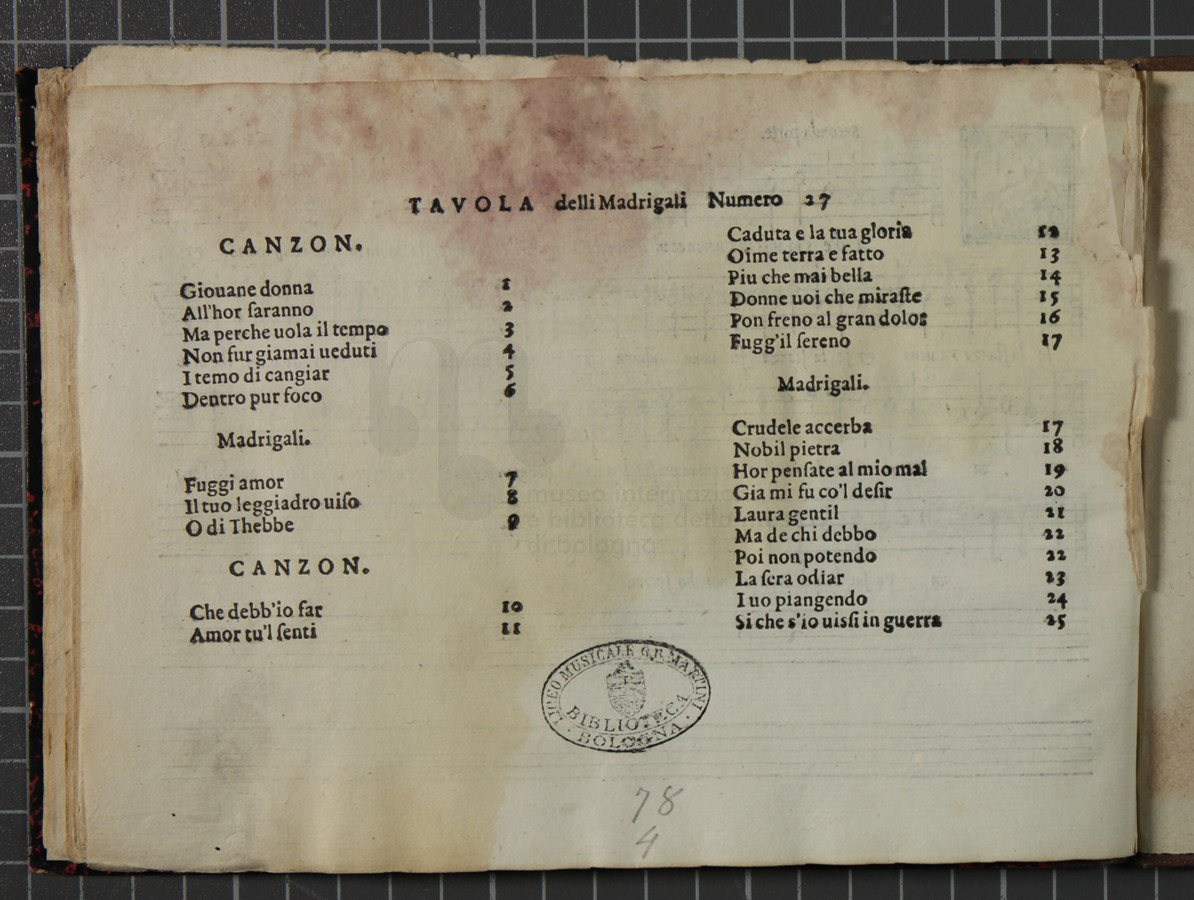 TAVOLA delli Madrigali Numero 27
CANZON.
Giouane donna 1
All'hor saranno 2
Ma perche uola il tempo 3
Non fur giamai ueduti 4
I temo di cangiar 5
Dentro pur foco 6
Madrigali.
Fuggi amor 7
Il tuo leggiadro uiso 8
O di Thebbe 9
CANZON.
Che debb'io far 10
Amor tu'l senti 11
Caduta e la tua gloria 12
Oime terra e fatto 13
Piu che mai bella 14
Donne uoi che miraste 15
Pon freno al gran dolor 16
Fugg'il sereno 17
Madrigali.
Crudele accerba 17
Nobil pietra 18
Hor pensate al mio mal 19
Gia mi fu co'l desir 20
Laura gentil 21
Ma de chi debbo 22
Poi non potendo 22
La sera odiar 23
I uo piangendo 24
Si che s'io uissi in guerra 25
LICEO MUSICALE G.B. MARTINI
BIBLIOTECA
BOLOGNA
78
4
museo internazio
e biblioteca della
di bologna